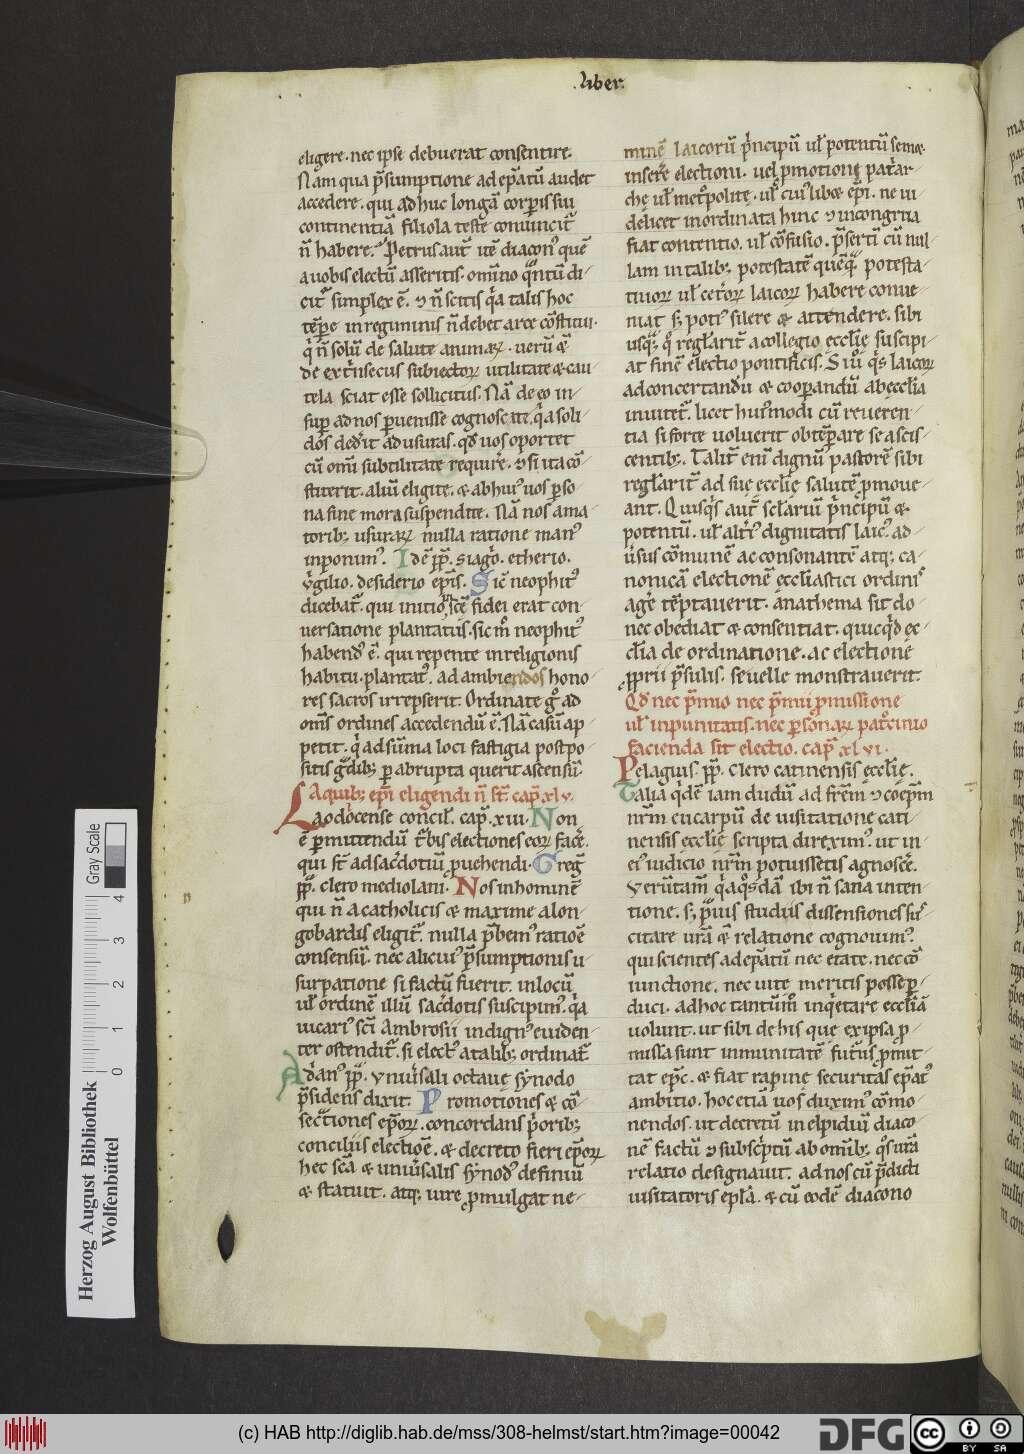 .liber.
eligere. nec ipse debuerat consentire.
Nam qua p̄sumptione ad ep̄atū audet
accedere. qui adhuc longā corporis sui
continentiā filiola teste conuincit᷑
n̄ habere. Petrus aut̄ itē diacon᷒ quē
a uobis electū asseritis. omīno qͣntū di-
cit᷑ simplex ē. ⁊ n̄ scitis qͥa talis hoc
tēpore in regiminis n̄ debet arce cōstitui.
qͥ n̄ solū de salute animaꝝ. uerū &
de extͥnsecus subiectoꝝ utilitate & cau-
tela sciat esse sollicitus. Nā de eo in-
sup̄ ad nos p̱uenisse cognoscite. qͥa soli-
dos dedit ad usuras. qd̄ uos oportet
cū omī subtilitate requirere. ⁊ si ita cō-
stiterit. aliū eligite. & ab hui᷒ uos p̱so-
na sine mora suspendite. Nā nos ama-
torib; usuraꝝ nulla ratione man᷒
inponim᷒. Idē p̄p̄. siagͦ. etherio.
v̓gilio. desiderio ep̄is. Sic̄ neophit᷒
dicebat᷑. qui initio in sc̄e fidei erat con-
uersatione plantatus. sic m̊ neophit᷒
habend᷒ ē. qui repente in religionis
habitu plantat᷒. ad ambiendos hono-
res sacros irrepserit. Ordinate gͦ ad
om̄s ordines accedendū ē. Nā casū ap-
petit. qͥ ad sūma loci fastigia postpo-
sitis gͣdib; p̱ abrupta querit ascensū.
A quib; ep̄i eligendi n̄ st̄. cap̄ xlv.
Laodocense concil̄. cap̄. xiii. Non
ē p̱mittendū t᷑bis electiones eoꝝ face̓.
qui st̄ ad sac̓dotiū ꝓuehendi. Greḡ
p̄p̄. clero mediolani. Nos in hominē
qui n̄ a catholicis & maxime a lon-
gobardis eligit᷑. nulla p̄bem᷒ ratiōe
consensū. nec alicui᷒ p̄sumptionis u-
surpatione si factū fuerit. in locū
ul̄ ordinē illū sac̓dotis suscipim᷒. qͥa
uicari᷒ sc̄i Ambrosii indign᷒ euiden-
ter ostendit᷑. si elect᷒ a talib; ordinat᷑.
Adͥan᷒ p̄p̄. vniu̓sali octaue synodo
p̄sidens dixit. Promotiones & cō-
sec̓tiones ep̄oꝝ. concordans pͥorib;
conciliis electiōē. & decreto fieri ep̄oꝝ
hec sc̄a & uniu̓salis synod᷒ definiū
& statuit. atq; iure ꝓmulgat ne-
minē laicorū pͥncipū ul̄ potentū semet
insere̓ electioni. uel ꝓmotioni patͥar-
che ul̄ metͦpolite. ul̄ cui᷒libet ep̄i. ne ui-
delicet inordinata hinc & incongrua
fiat contentio. ul̄ cōfusio. p̄sertī cū nul-
lam in talib; potestatē quēqͣ potesta-
tiuoꝝ ul̄ cet̓oꝝ laicoꝝ habere conue-
niat s; poti᷒ silere & attendere. sibi
usq; qͦ regl̓arit̓ a collegio eccl̄ie suscipi-
at finē electio pontificis. Si u̓o qͥs laicoꝝ
ad concertandū & cooperandū ab eccl̄ia
inuitet᷑. licet hui᷒modi cū reueren-
tia si forte uoluerit obtēp̱are se ascis-
centib;. Talit̓ enī dignū pastorē sibi
regl̓arit̓ ad sue eccl̄ie salutē ꝓmoue-
ant. Quisqͥs aut̄ sc̄lariū pͥncipū &
potentū. ul̄ alt̓i᷒ dignitatis laic᷒. ad-
u̓sus cōmunē ac consonantē atq; ca-
nonicā electionē eccl̄iastici ordinis
age̓ tēptauerit. anathema sit do-
nec obediat & consentiat. quicqͥd ec-
cl̄ia de ordinatione. ac electione
ꝓprii p̄sulis. se uelle monstrauerit.
Qd̄ nec p̄mio nec p̄mii ꝓmissione
ul̄ inpunitatis. nec p̱sonaꝝ patͦcinio
facienda sit electio. cap̄ xlvi.
Pelagius. p̄p̄. clero catinensis eccl̄ie.
Talia qͥdē iam dudū ad fr̄em ⁊ coep̄m
nr̄m eucarpū de uisitatione cati-
nensis eccl̄ie scripta direxim᷒. ut in
ei᷒ iudicio nr̄m potuissetis agnosce̓.
Verūtam̄ qͥa qͦsdā ibi n̄ sana inten-
tione. s; pͣuis studiis dissensiones sus-
citare ur̄a & relatione cognouim᷒.
qui scientes ad ep̄atū nec etate. nec cō-
iunctione. nec uite meritis posse p̱-
duci. ad hoc tantūm̊ inqͥetare eccl̄iā
uolunt. ut sibi de his que ex ipsa ꝓ-
missa sunt inmunitatē fut̓us ꝓmit-
tat ep̄c. & fiat rapine securitas ep̄at᷒
ambitio. hoc etiā uos duxim᷒ cōmo-
nendos. ut decretū in elpidiū diaco-
nē factū ⁊ subscͥptū ab omīb; qͦs ur̄a
relatio designauit. ad nos cū p̄dicti
uisitatoris ep̄l̄a. & cū eodē diacono
Gray Scale
0 1 2 3 4
Herzog August Bibliothek
Wolfenbüttel
(c) HAB http://diglib.hab.de/mss/308-helmst/start.htm?image=00042
DFG
cc
BY SA